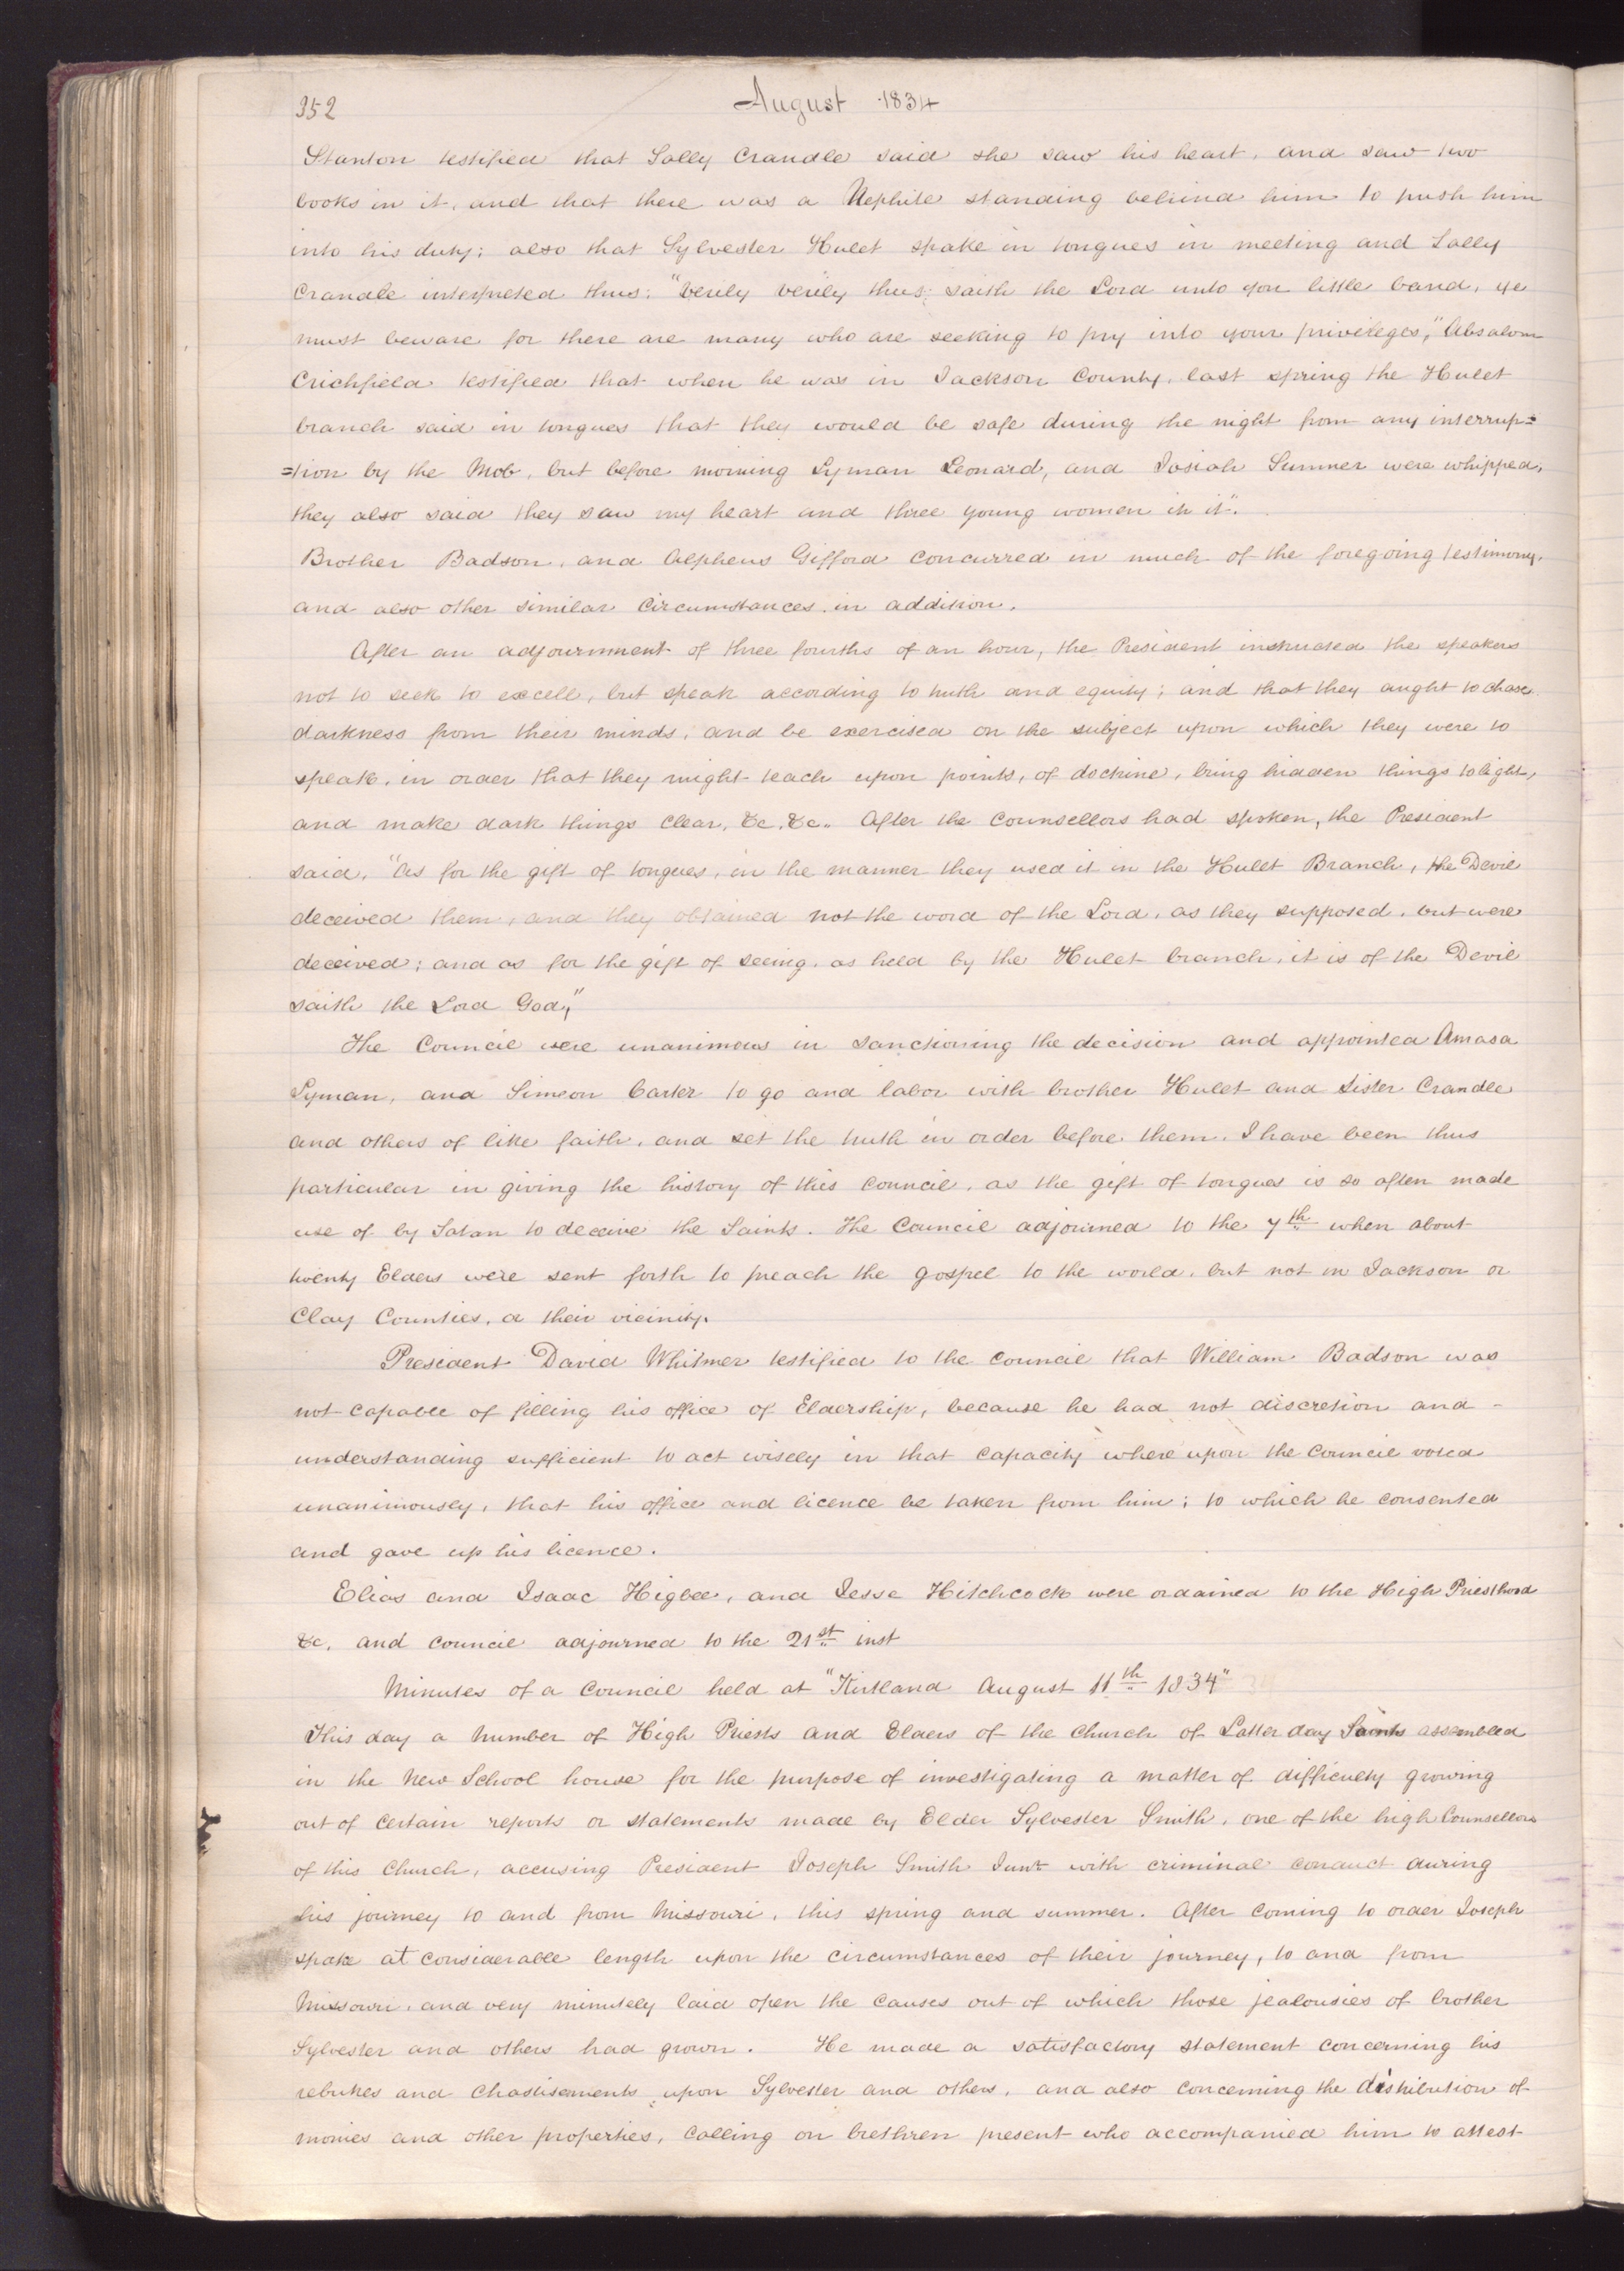 352
August 1834
Stanton testified that Sally Crandle said she saw his heart, and saw two
books in it, and that there was a Nephite standing behind him to push him
into his duty; also that Sylvester Hulet spake in tongues in meeting and Sally
Crandle interpreted thus: "Verily verily thus saith the Lord unto you little band, ye
must beware for there are many who are seeking to pry into your privileges," Absalom
Crichfield testified that when he was in Jackson County, last spring the Hulet
branch said in tongues that they would be safe during the night from any interrup=
=tion by the Mob, but before morning Lyman Leonard, and Josiah Sumner were whipped,
they also said they saw my heart and three young women in it".
Brother Badson, and Alpheus Gifford concurred in much of the foregoing testimony,
and also other similar circumstances in addition.
After an adjournment of three fourths of an hour, the President instructed the speakers
not to seek to excell, but speak according to truth and equity; and that they aught to chase
darkness from their minds, and be exercised on the subject upon which they were to
speak, in order that they might teach upon points, of doctrine, bring hidden things to light,
and make dark things clear, &c. &c.. After the Counsellors had spoken, the President
said, "As for the gift of tongues, in the manner they used it in the Hulet Branch, the Devil
deceived them, and they obtained not the word of the Lord, as they supposed, but were
deceived; and as for the gift of seeing, as held by the Hulet branch, it is of the Devil
saith the Lord God,"
The Council were unanimous in sanctioning the decision and appointed Amasa
Lyman, and Simeon Carter to go and labor with brother Hulet and Sister Crandle
and others of like faith, and set the truth in order before them. I have been thus
particular in giving the history of this Council, as the gift of tongues is so often made
use of by Satan to deceive the Saints. The Council adjourned to the 7th when about
twenty Elders were sent forth to preach the gospel to the world, but not in Jackson or
Clay Counties, or their vicinity.
President David Whitmer testified to the Council that William Badson was
not capable of filling his office of Eldership, because he had not discretion and -
understanding sufficient to act wisely in that capacity where upon the Council voted
unanimously, that his office and licence be taken from him; to which he consented
and gave up his licence.
Elias and Isaac Higbee, and Jesse Hitchcock were ordained to the High Priesthood
&c, and council adjourned to the 21st inst
Minutes of a Council held at "Kirtland August 11th 1834"
This day a number of High Priests and Elders of the Church of Latter day Saints assembled
in the New School house for the purpose of investigating a matter of difficulty growing
out of certain reports or statements made by Elder Sylvester Smith, one of the high Counsellors
of this Church, accusing President Joseph Smith Junr with criminal conduct during
his journey to and from Missouri, this spring and summer. After coming to order Joseph
spake at considerable length upon the circumstances of their journey, to and from
Missouri, and very minutely laid open the causes out of which those jealousies of brother
Sylvester and others had grown. He made a satisfactory statement concerning his
rebukes and chastisements upon Sylvester and others, and also concerning the distribution of
monies and other properties, calling on brethren present who accompanied him to attest